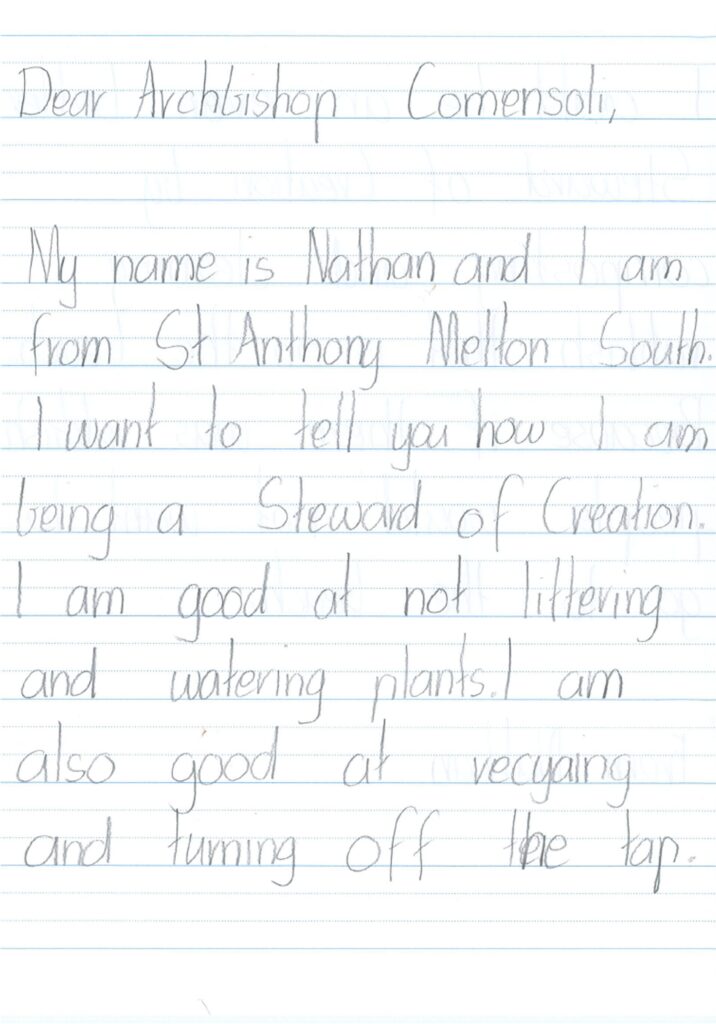 Dear Archbishop Comensoli,
My name is Nathan and I am
from St Anthony Melton South.
I want to tell you how I am
being a Steward of Creation.
I am good at not littering
and watering plants. I am
also good at recyaing
and turning off the tap.